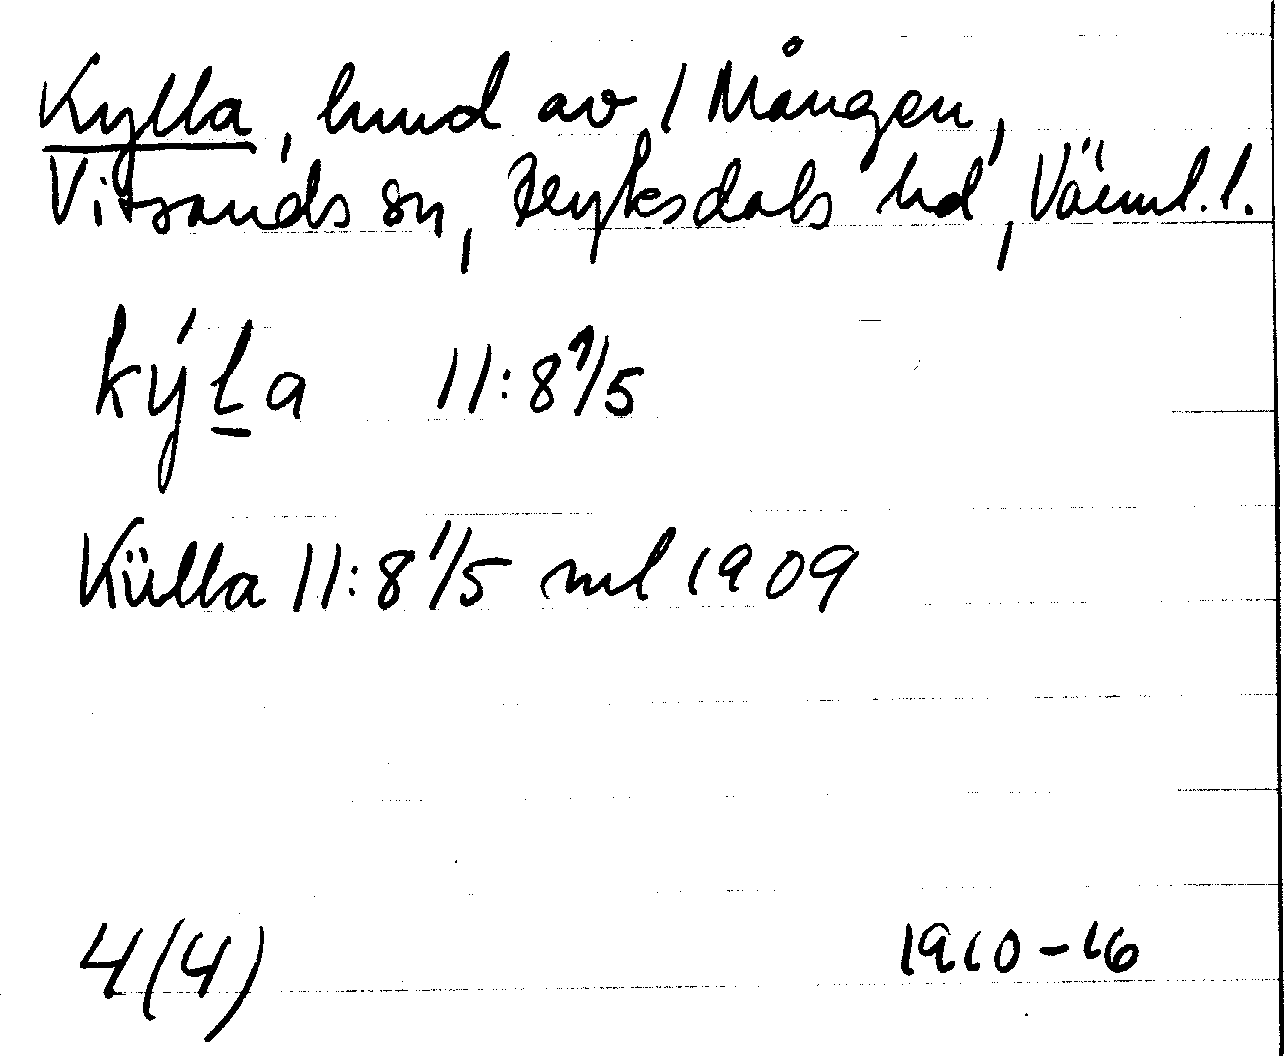 Kylla, hmd av 1 Mången,
Vitsands sn, Fryksdals hd, Värml. l.
kýl̠a 11:8 1/5
Külla 11:8 1/5 ml 1909
4(4) 1910-16